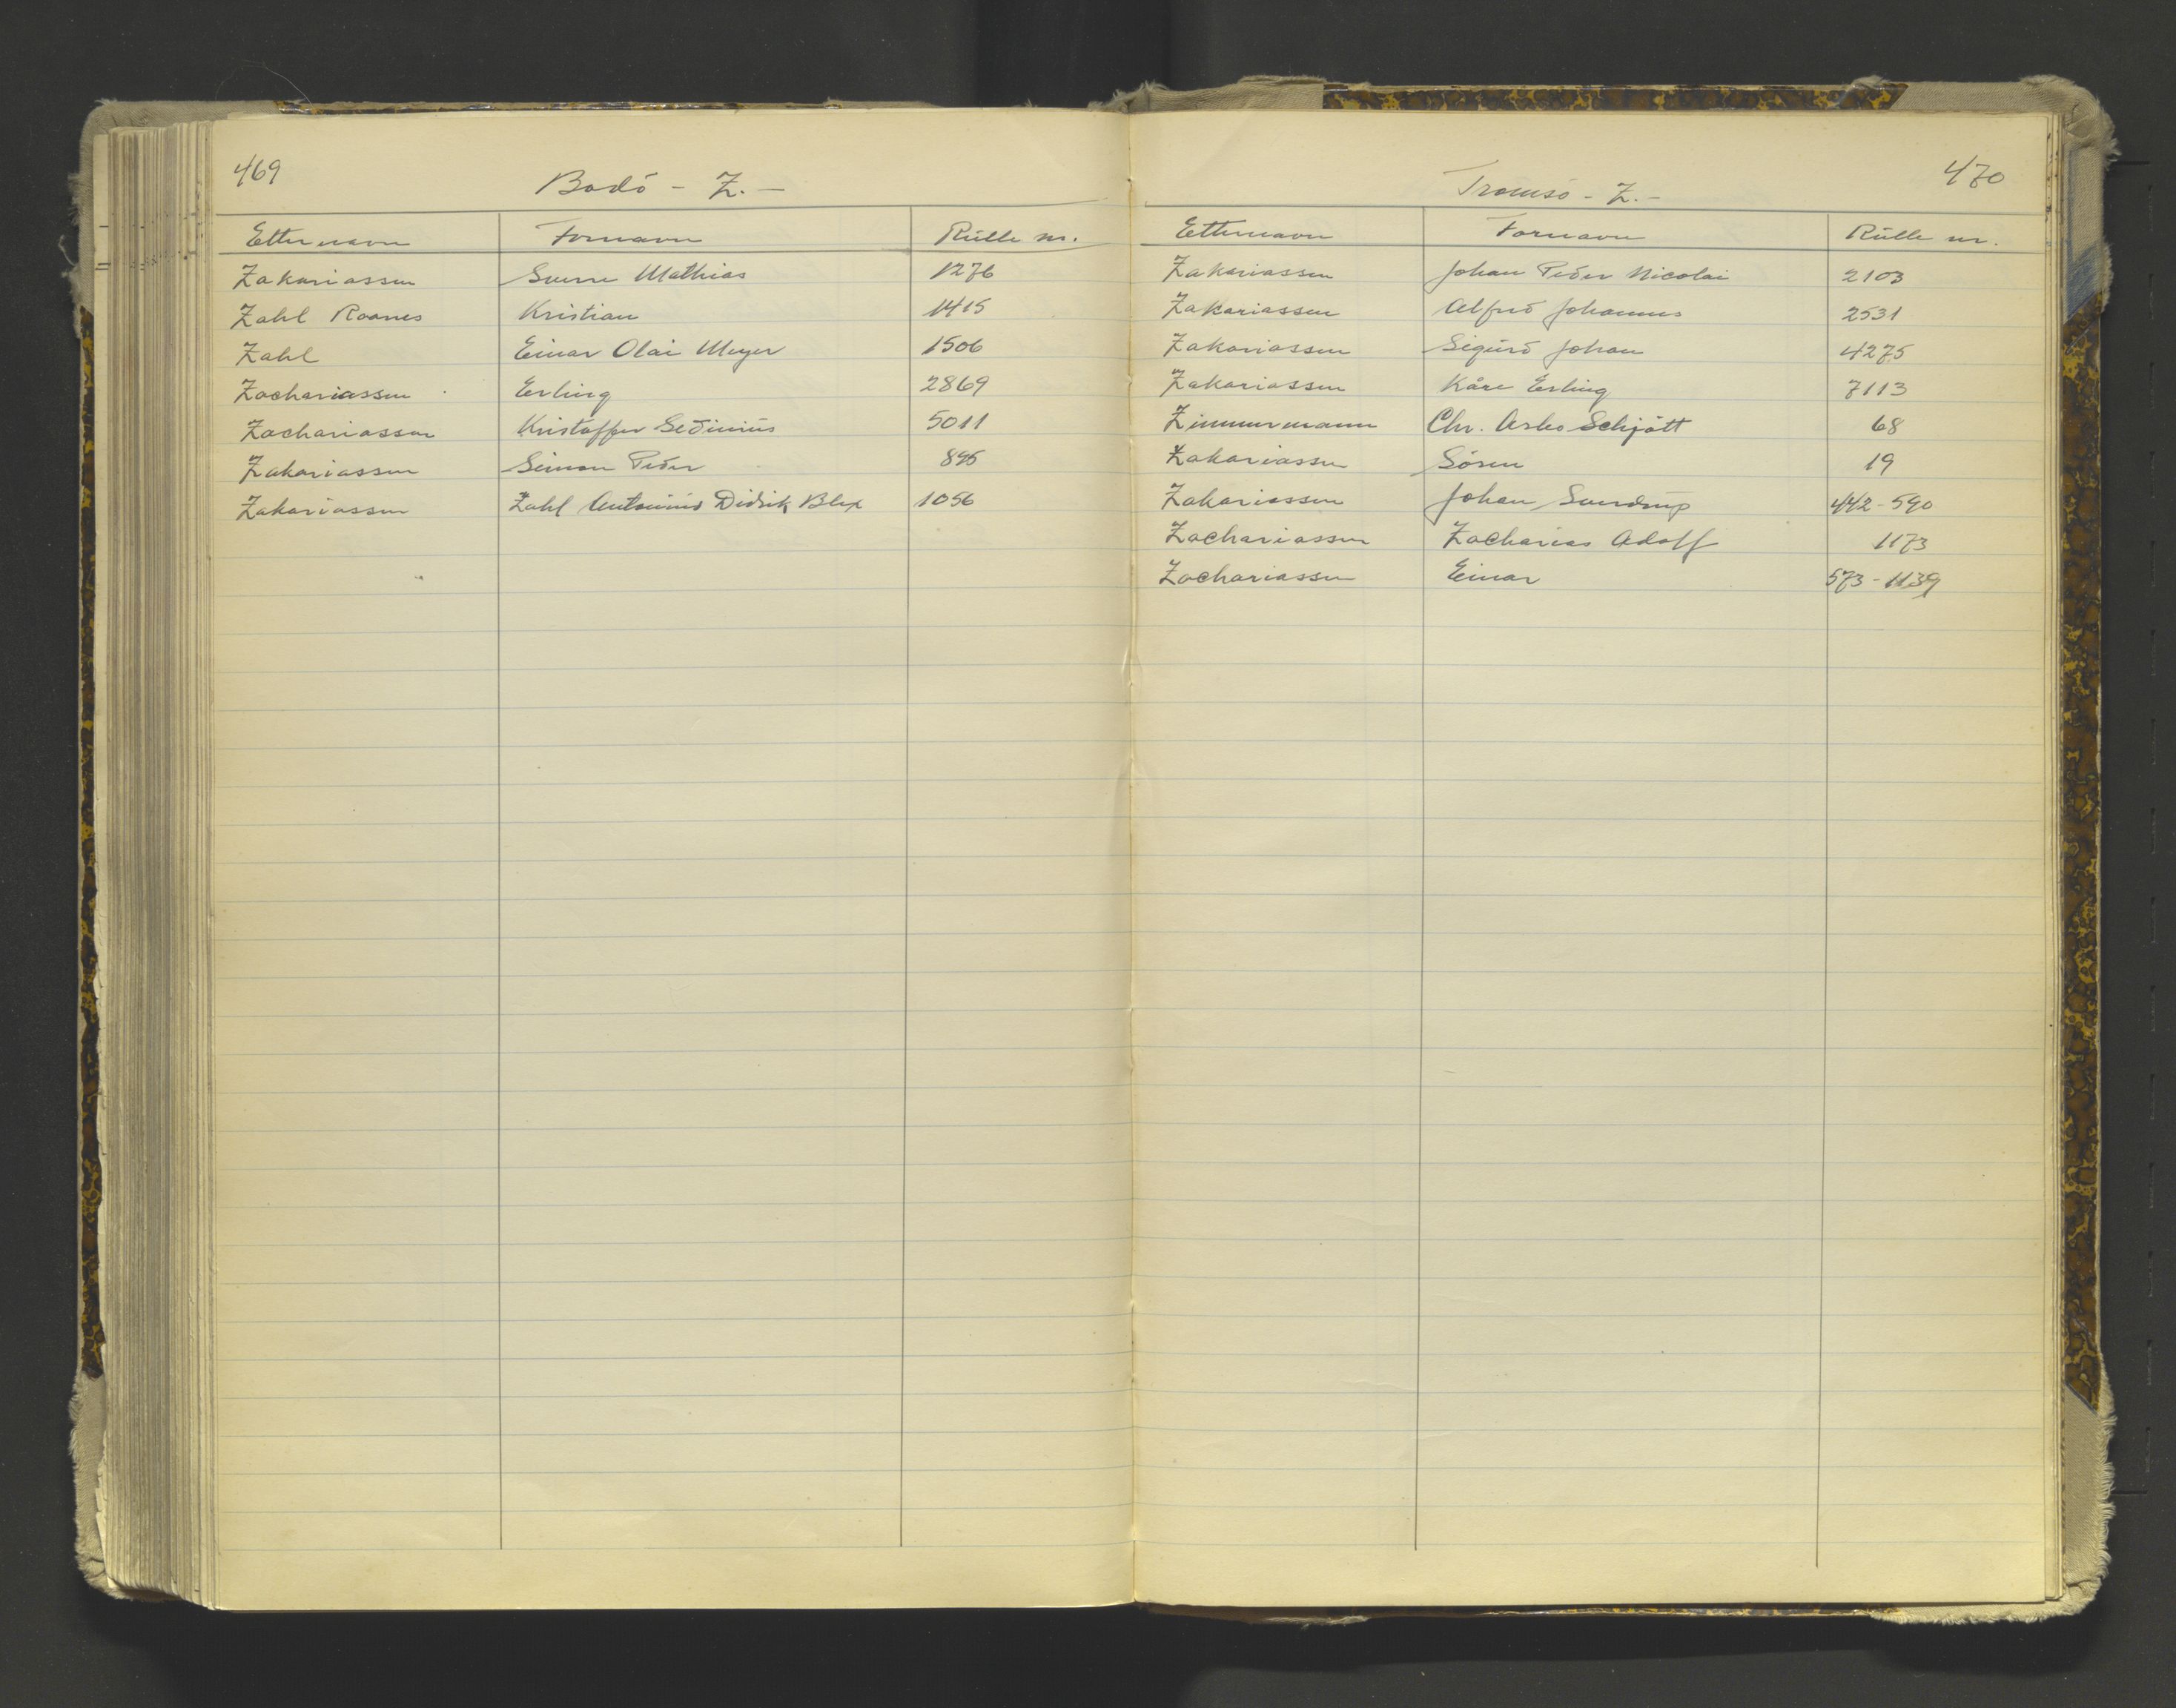 469
Bodö - Z. -
Etternavn Fornavn Rulle nr.
Zakariassen Sverre Mathias 1276
Zahl Roanes Kristian 1415
Zahl Einar Olai Meyer 1506
Zachariassen Erling 2869
Zachariassen Kristoffer Sedinius 5011
Zakariassen Simon Peder 895
Zakariassen Zahl Antonius Didrik Blix 1056
470
Tromsö - Z. -
Etternavn Fornavn Rulle nr.
Zakariassen Johan Peder Nicolai 2103
Zakariassen Alfred Johannes 2531
Zakariassen Sigurd Johan 4275
Zakariassen Kåre Erling 7113
Zimmermann Chr. Asbo Schjött 68
Zakariassen Sören 19
Zakariassen Johan Sundrup 442-590
Zachariassen Zacharias Adolf 1173
Zachariassen Einar 573-1139